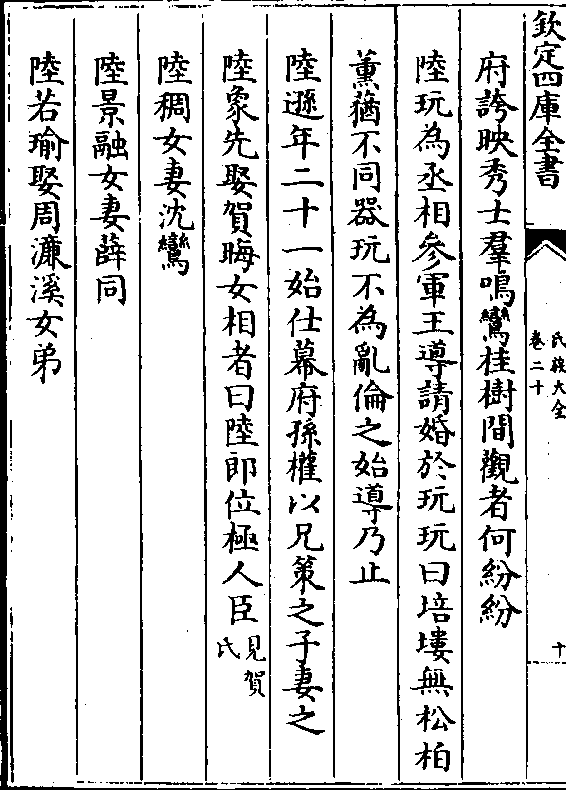 欽定四庫全書
氏族大全
卷二十
十
府誇映秀士羣鳴鸞桂樹間觀者何紛紛
陸玩為丞相參軍王導請婚於玩玩曰培塿無松柏
薰蕕不同器玩不為亂倫之始導乃止
陸遜年二十一始仕幕府孫權以兄策之子妻之
陸象先娶賀晦女相者曰陸郎位極人臣見賀氏
陸稠女妻沈鸞
陸景融女妻薛同
陸若瑜娶周濂溪女弟